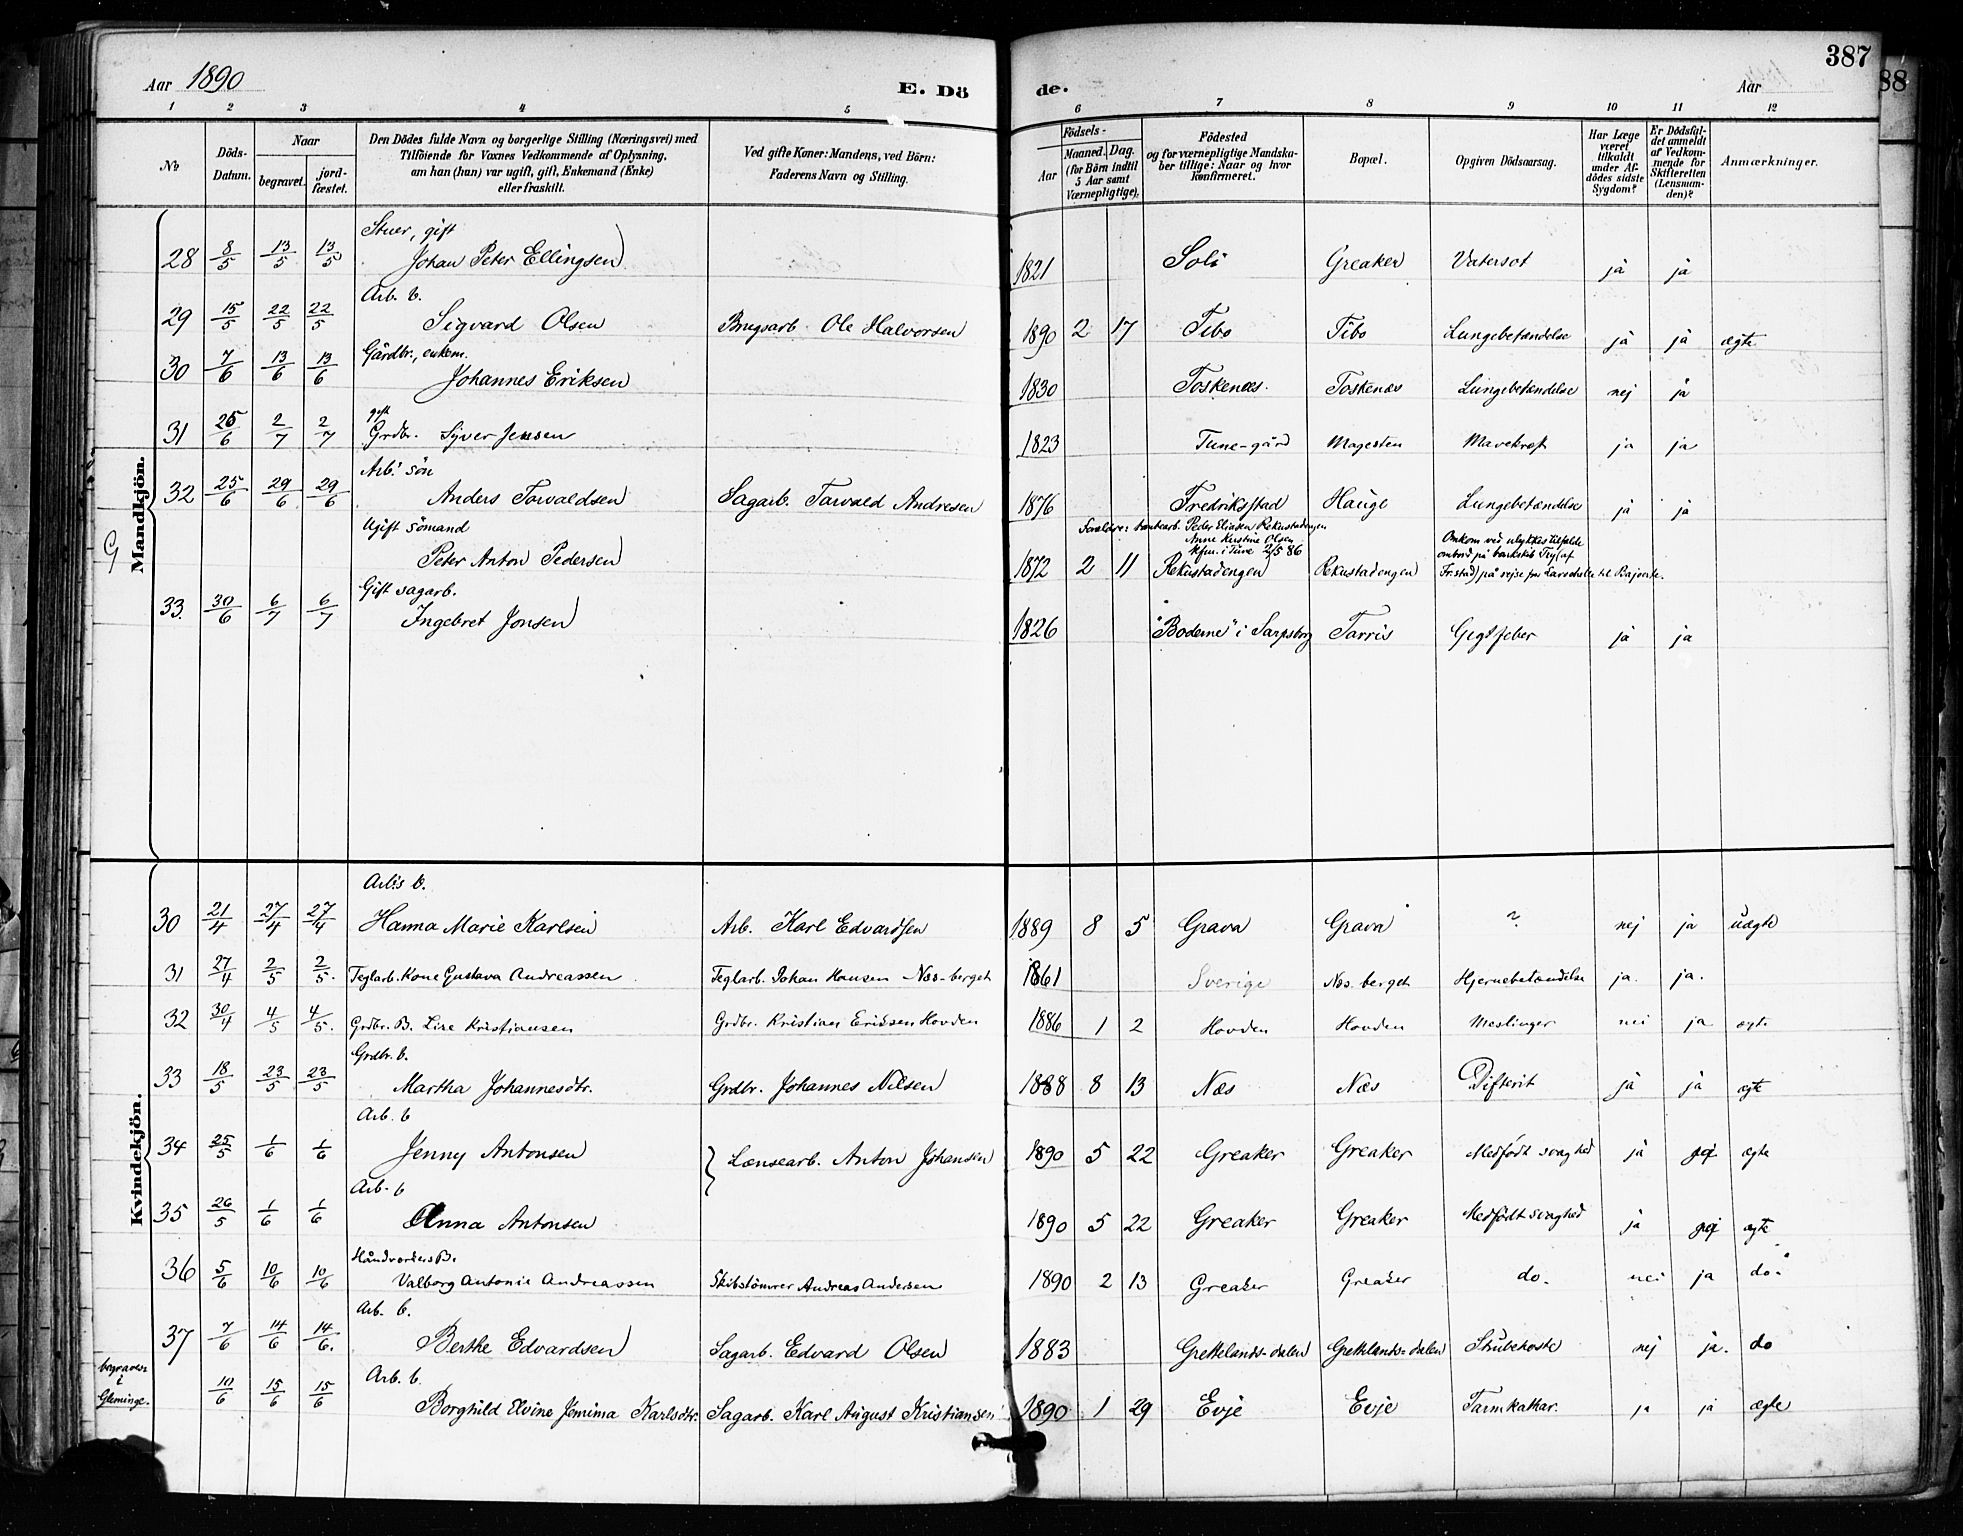 387
88
Aar 1890
E. Dö
de.
Aar
1 2 3 4 5 6 7 8 9 10 11 12
No
Döds-
Datum.
Naar
begravet.
jord-
fæstet.
Den Dödes fulde Navn og borgerlige Stilling (Næringsvei) med
Tilföiende for Voxnes Vedkommende af Oplysning,
om han (hun) var ugift, gift, Enkemand (Enke)
eller fraskilt.
Ved gifte Koner: Mandens, ved Börn:
Faderens Navn og Stilling.
Födsels-
Aar
Maaned. Dag.
(for Börn indtil
5 Aar samt
Værnepligtige).
Födested
og for værnepligtige Mandska-
ber tillige: Naar og hvor
konfirmeret.
Bopæl.
Opgiven Dödsaarsag.
Har Læge
været
tilkaldt
under Af-
dödes sidste
Sygdom?
Er Dödsfal-
det anmeldt
af Vedkom-
mende for
Skifteretten
(Lensman-
den)?
Anmærkninger.
Mandkjön.
Stuer, gift
28 8/5 13/5 13/5 Johan Peter Ellingsen 1821 Soli Greaker Vatersot ja ja
Arb. b.
29 15/5 22/5 22/5 Sigvard Olsen Brugsarb. Ole Halvorsen 1890 2 17 Tibo Tibo Lungebetændelse ja ja ægte
Gårdbr., enkem.
30 7/6 13/6 13/6 Johannes Eriksen 1830 Toskenæs. Toskenæs Lungebetændelse nej ja
gift
31 26/6 2/7 2/7 Grdbr. Syver Jensen 1823 Tune-gård Magesten Mavekræft ja ja
Arb.s sön
32 25/6 29/6 29/6 Anders Torvaldsen Sagarb. Torvald Andresen 1876 Fredrikstad Hauge Lungebetændelse ja ja
Ugift sömand
Forældre: tomtearb. Peder Eliasen Rekustadengen
Anne Kirstine Olsen
kfm. i Tune 2/5 86
Omkom ved ulykkestilfælde
ombord på barkskib Try (af
G Peter Anton Pedersen 1872 2 11 Rekustadengen Rekustadengen Fr.stad) på rejse fra
Gift sagarb.
33. 30/6 6/7 6/7 Ingebret Jonsen 1826 "Boderne" i Sarpsborg Torris Gigtfeber ja ja
Kvindekjön.
Arb.s b.
30 21/4 27/4 27/4 Hanna Marie Karlsen Arb. Karl Edvardsen 1889 8 5 Grava Grava ? nej ja uægte
31 27/4 2/5 2/5. Teglarb. Kone Gustava Andreassen Teglarb. Johan Hansen Næs-berget 1861 Sverige Næs. berget Hjernebetændelse ja. ja.
32 30/4 4/5 4/5. Grdbr. B. Lise Kristiansen Grdbr. Kristian Eriksen Hovden 1886 1 2 Hovden Hovden Meslinger nei ja ægte
Grdbr. b.
33 18/5 23/5 23/5 Martha Johannesdtr. Grdbr. Johannes Nilsen 1888 8 13 Næs Næs Difterit ja ja ægte
Arb. b
34 25/5 1/6 1/6 Jenny Antonsen } Lænsearb. Anton Johansen 1890 5 22 Greaker Greaker Medfödt svaghed ja nej ægte
Arb. b
35 26/5 1/6 1/6 Anna Antonsen 1890 5 22 Greaker Greaker Medfödt svaghed ja nej ægte
Håndverkers B.
36 5/6 10/6 10/6 Valborg Antonie Andreassen Skibstömrer Andreas Andersen 1890 2 13 Greaker Greaker do. nei ja do.
Arb. b.
37 7/6 14/6 14/6. Berthe Edvardsen Sagarb. Edvard Olsen 1883 Grettelands-dalen Grettlands-dalen Strubehoste nej ja. do
begraven
i
Glemminge.
Arb. b.
10/6 15/6 15/6 Borghild Elvine Jemima Karlsdtr. Sagarb. Karl August Kristiansen 1890 1 29 Evje Evje Tarmkathar. ja ja ægte